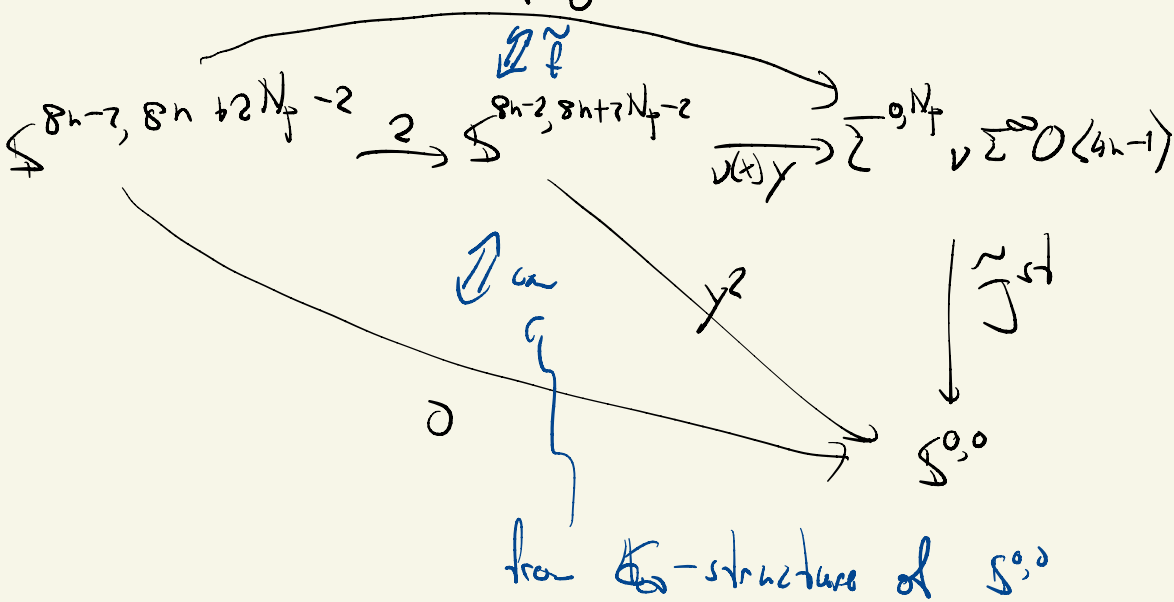 f̃
𝕊^{8n-2, 8n+2N_p-2} 2 𝕊^{8n-2, 8n+2N_p-2} ν(x)y Σ^{0,N_p} ν Σ^∞ O⟨4n-1⟩
can
y² J̃^{st}
0
𝕊^{0,0}
from 𝔼_∞-structure of 𝕊^{0,0}